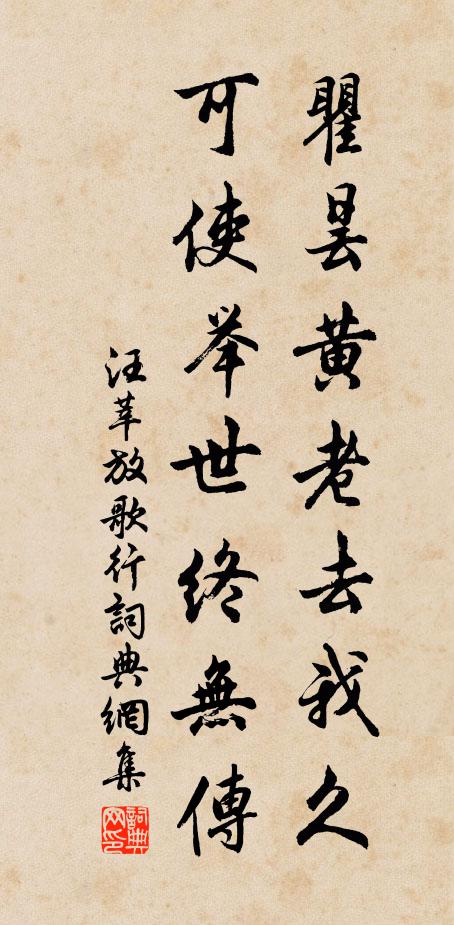 瞿昙黄老去我久
可使举世终無傳
汪莘放歌行詞典網集
詞典网印